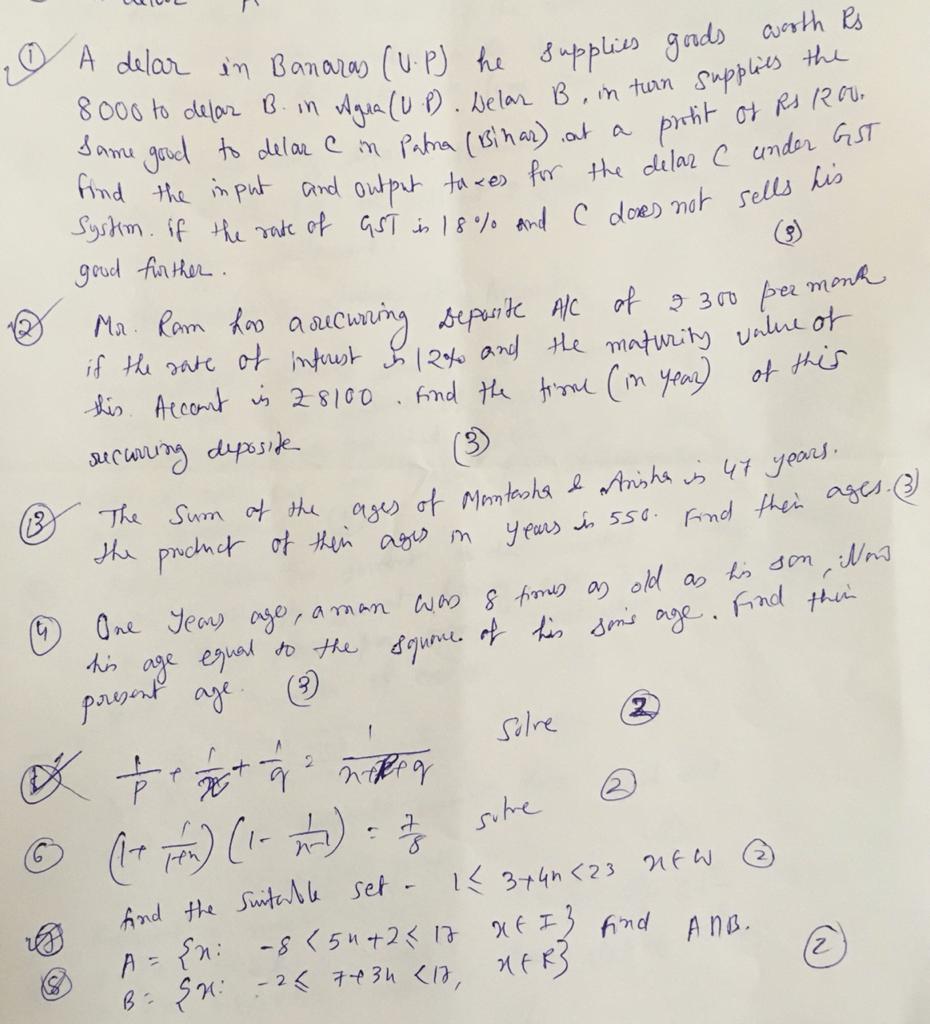 ① A delar in Banaras (U.P) he supplies goods worth Rs
8000 to delar B. in Agra (U.P). Delar B, in turn supplies the
Same good to delar C in Patna (Bihar) at a profit of Rs 1200.
find the input and output taxes for the delar C under GST
System. if the rate of GST is 18% and C does not sells his
good further. (3)
② Mr. Ram has a recurring Deposite A/C of ₹ 300 per month
if the rate of interest is 12% and the maturity value of
this Account is ₹ 8100. Find the time (in year) of this
recurring deposite (3)
③ The Sum of the ages of & Anisha is 47 years.
the product of their ages in years is 550. Find their ages. (3)
④ One Years ago, a man was 8 times as old as his son, Now
his age equal to the square of his son's age. Find their
present age. (3)
1/p + 1/x + 1/q = 1/x+p+q solve ②
⑥ (1+ 1/1+x) (1- 1/x-1) = 7/8 solve ②
⑦ find the suitable set - 1≤ 3+4x <23 x∈W ②
⑧ A = {x: -8 < 5x+2 ≤ 17 x∈I} find A∩B.
B = {x: -2 ≤ 7+3x <17, x∈R} ②